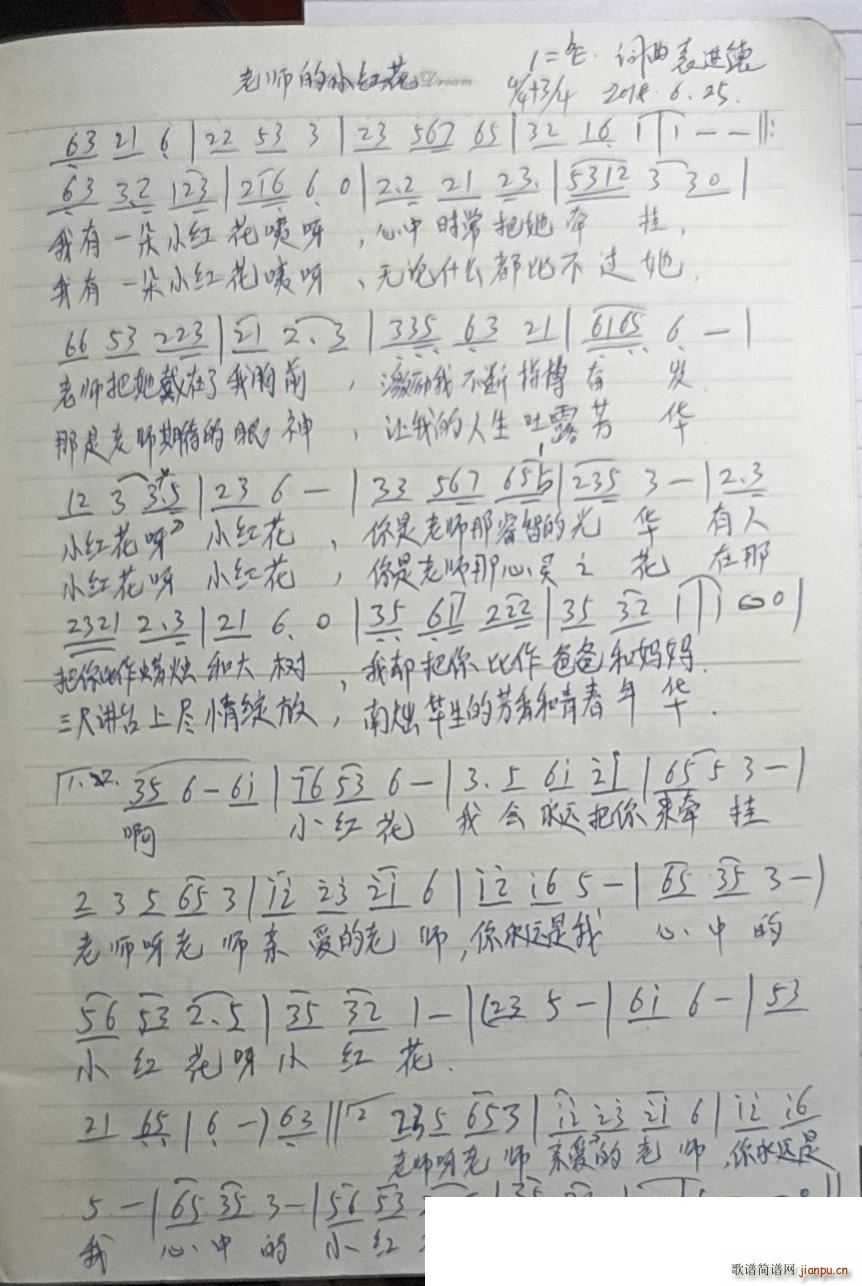 老师的小红花 Dream
1=ᵇE. 词曲袁进德
4/4+3/4 2018.6.25.
63 21 6 | 22 53 3 | 23 567 65 | 32 16 1 | 1 — — ‖:
63 3.2 123 | 216 6 0 | 2.2 21 23. | 5312 3 30 |
我有一朵小红花咦呀，心中时常把她牵挂，
我有一朵小红花咦呀、无论什么都比不过她.
66 53 223 | 21 2.3 | 335 63 21 | 6165 6 — |
老师把她戴在了我胸前，激励我不断拼搏奋发
那是老师期待的眼神，让我的人生吐露芳华
12 3 3.5 | 23 6 — | 33 567 655 | 235 3 — | 2.3
小红花呀 小红花，你是老师那睿智的光华 有人
小红花呀 小红花，你是老师那心灵之花 在那
2321 2.3 | 21 6. 0 | 35 617 222 | 35 32 1 | 1 00 |
把你比作蜡烛和大树，我却把你比作爸爸和妈妈.
三尺讲台上尽情绽放，毕生的芳香和青春年华.
1. 2. 35 6 — 6i | 76 53 6 — | 3. 5 6i 2i | 65 5 3 — |
啊 小红花 我会永远把你来牵挂
2 3 5 65 3 | i2 23 2i 6 | i2 i6 5 — | 65 35 3 — |
老师呀老师亲爱的老师,你永远是我 心中的
56 53 2.5 | 35 32 1 — | (23 5 — | 6i 6 — | 53
小红花呀小红花.
21 65 | 6 — ) 63 ‖ 2 23 5 653 | i2 23 2i 6 | i2 i6
老师呀老师亲爱的老师,你永远是
5 — | 65 35 3 — | 56 53
我 心中的小红
歌谱简谱网 jianpu.cn